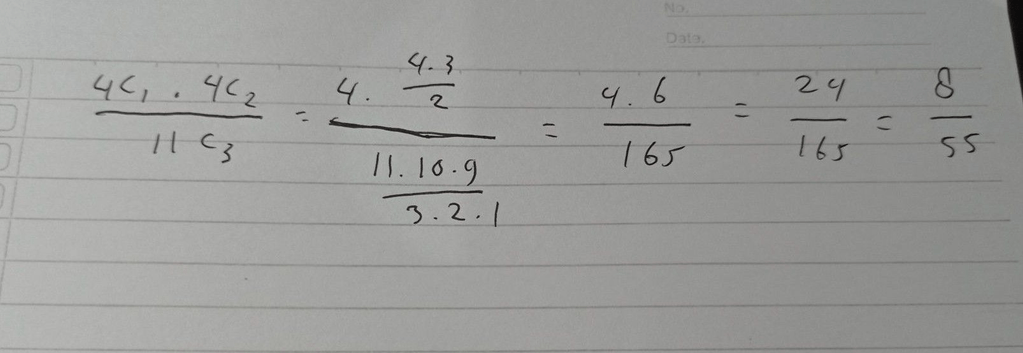 No.
Date.
4C₁ . 4C₂ / 11C₃ = 4 . (4.3 / 2) / (11.10.9 / 3.2.1) = 4.6 / 165 = 24 / 165 = 8 / 55